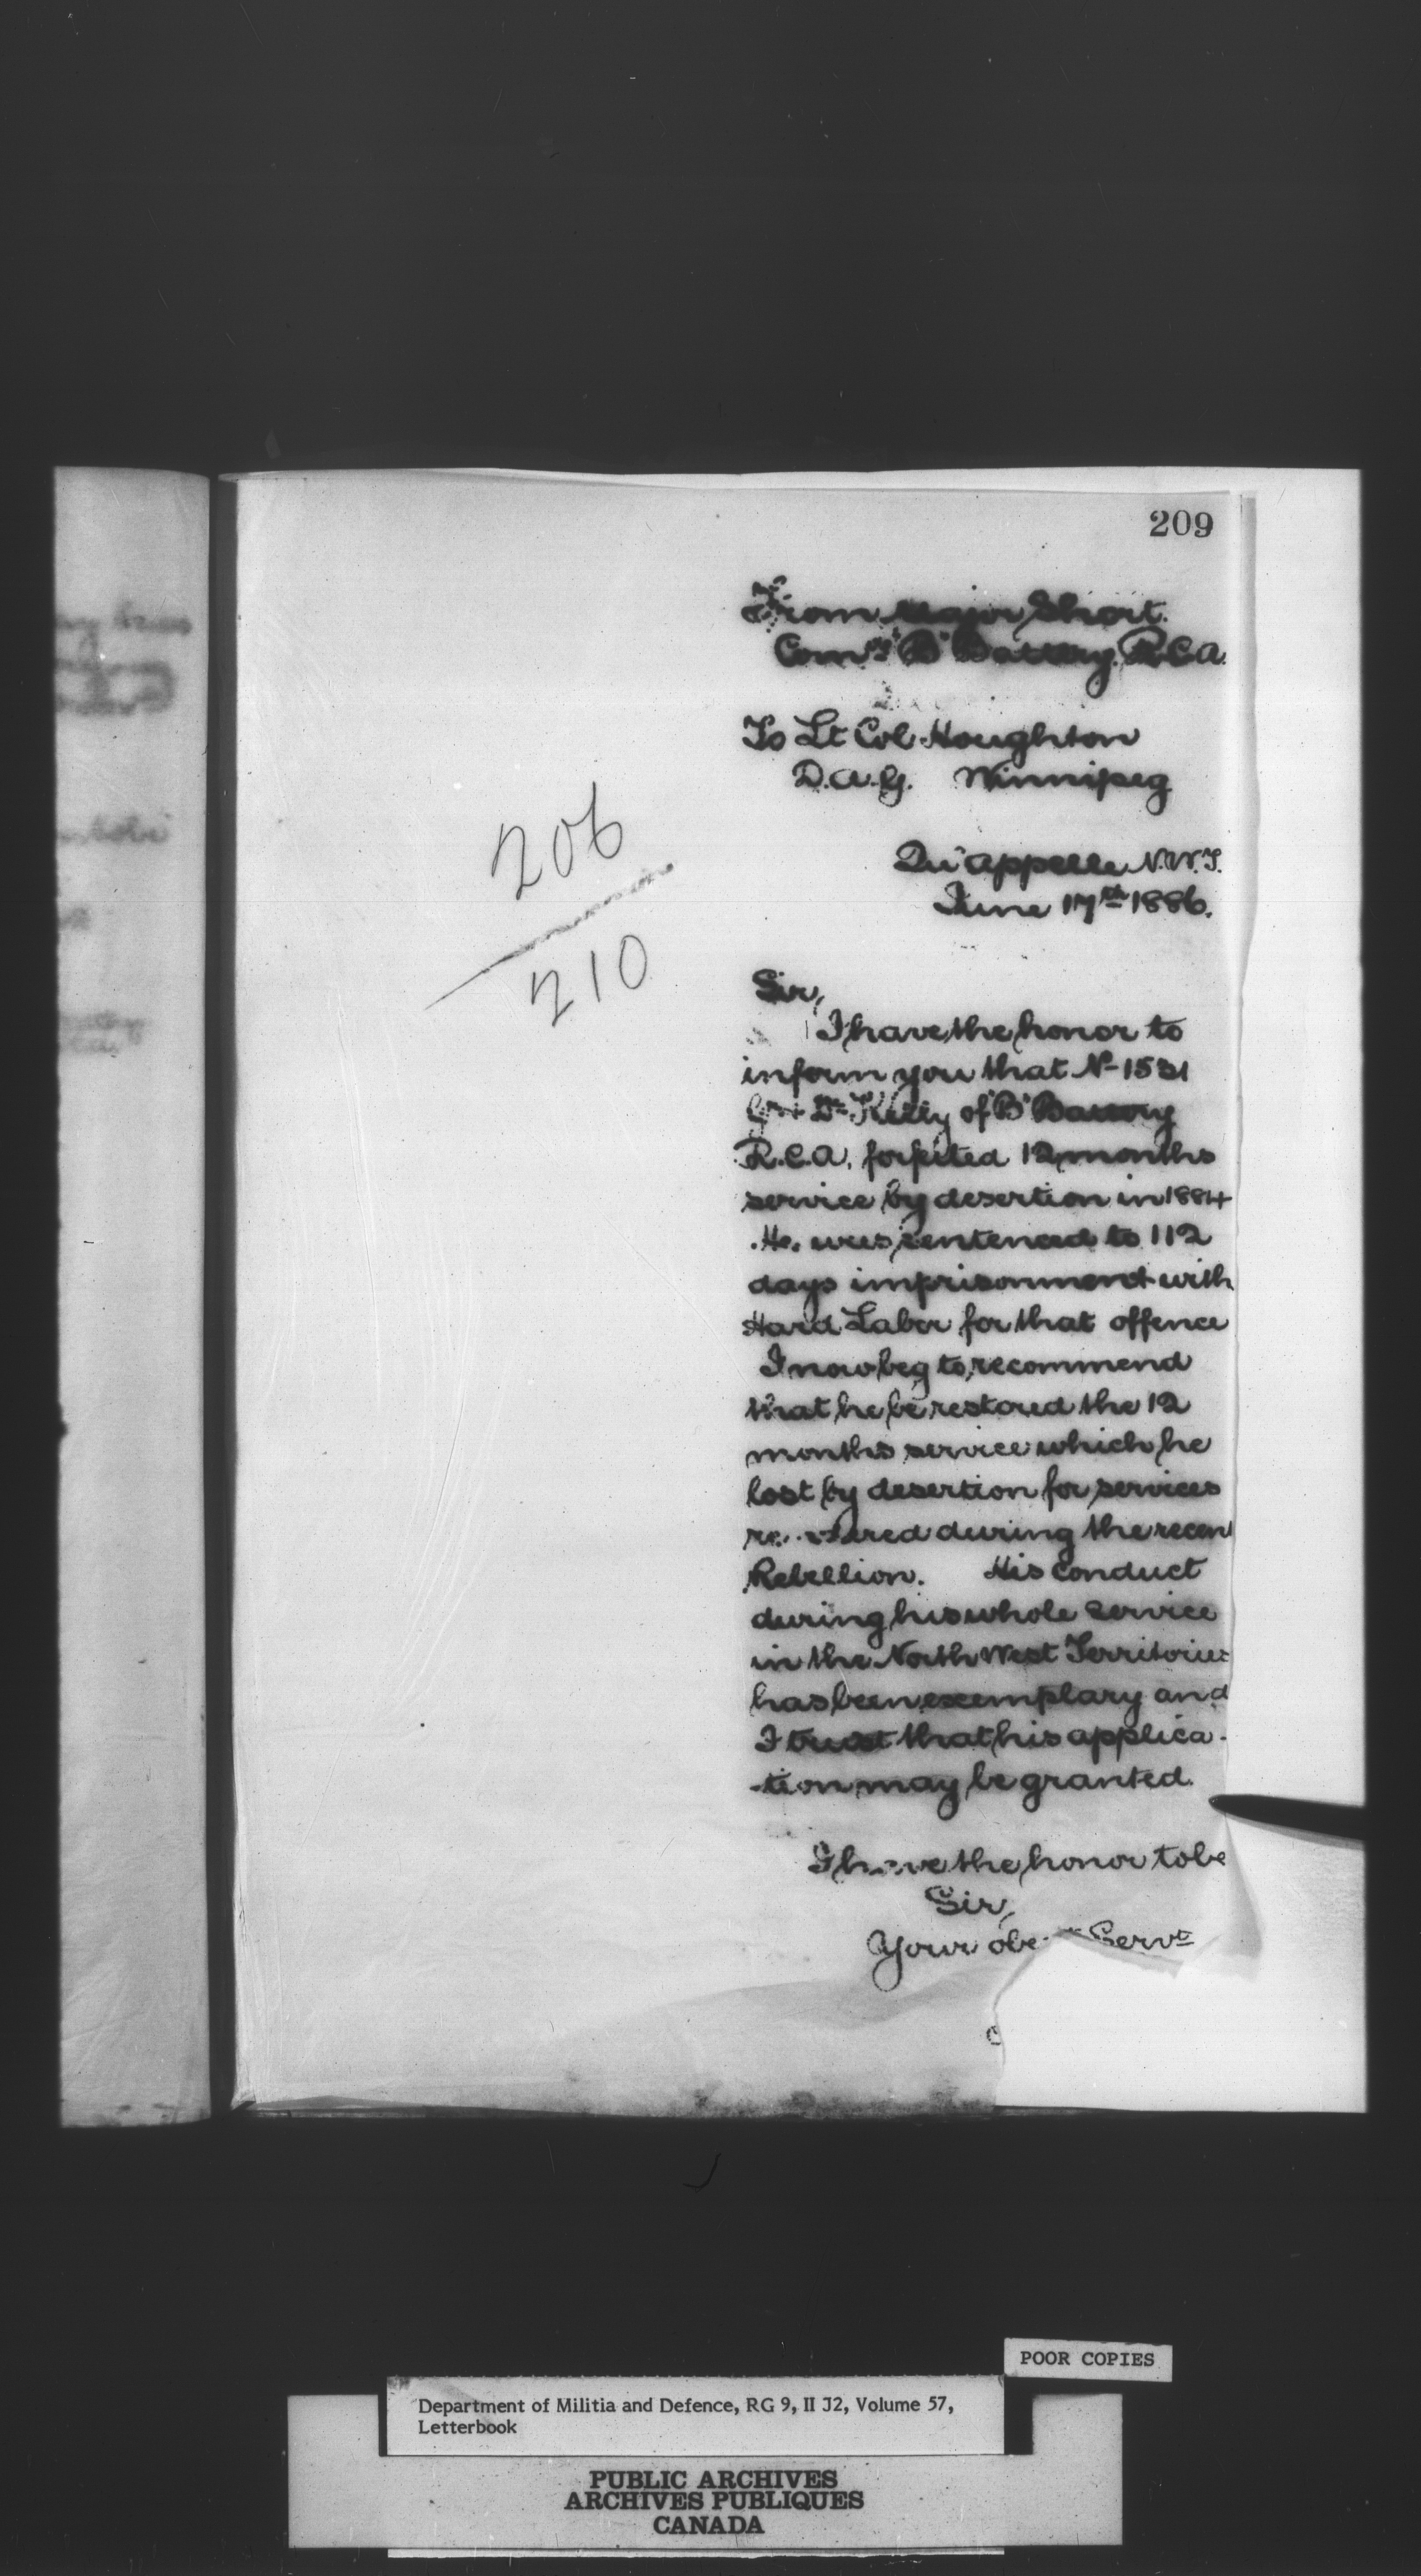 209
From Major Short.
Comdg "B" Battery. R.C.A.
To Lt Col Houghton
D.A.G. Winnipeg
Qu'appelle N.W.T.
June 17th 1886.
206
210
Sir,
I have the honor to
inform you that No 1531
Kelly of "B" Battery
R.C.A. forfeited 12 months
service by desertion in 1884
He was sentenced to 112
days imprisonment with
Hard Labor for that offence
I now beg to recommend
that he be restored the 12
months service which he
lost by desertion for services
rendered during the recent
Rebellion. His conduct
during his whole service
in the North West Territories
has been exemplary and
I trust that his applica-
-tion may be granted.
I have the honor to be
Sir,
Your obedt Servt
POOR COPIES
Department of Militia and Defence, RG 9, II J2, Volume 57,
Letterbook
PUBLIC ARCHIVES
ARCHIVES PUBLIQUES
CANADA